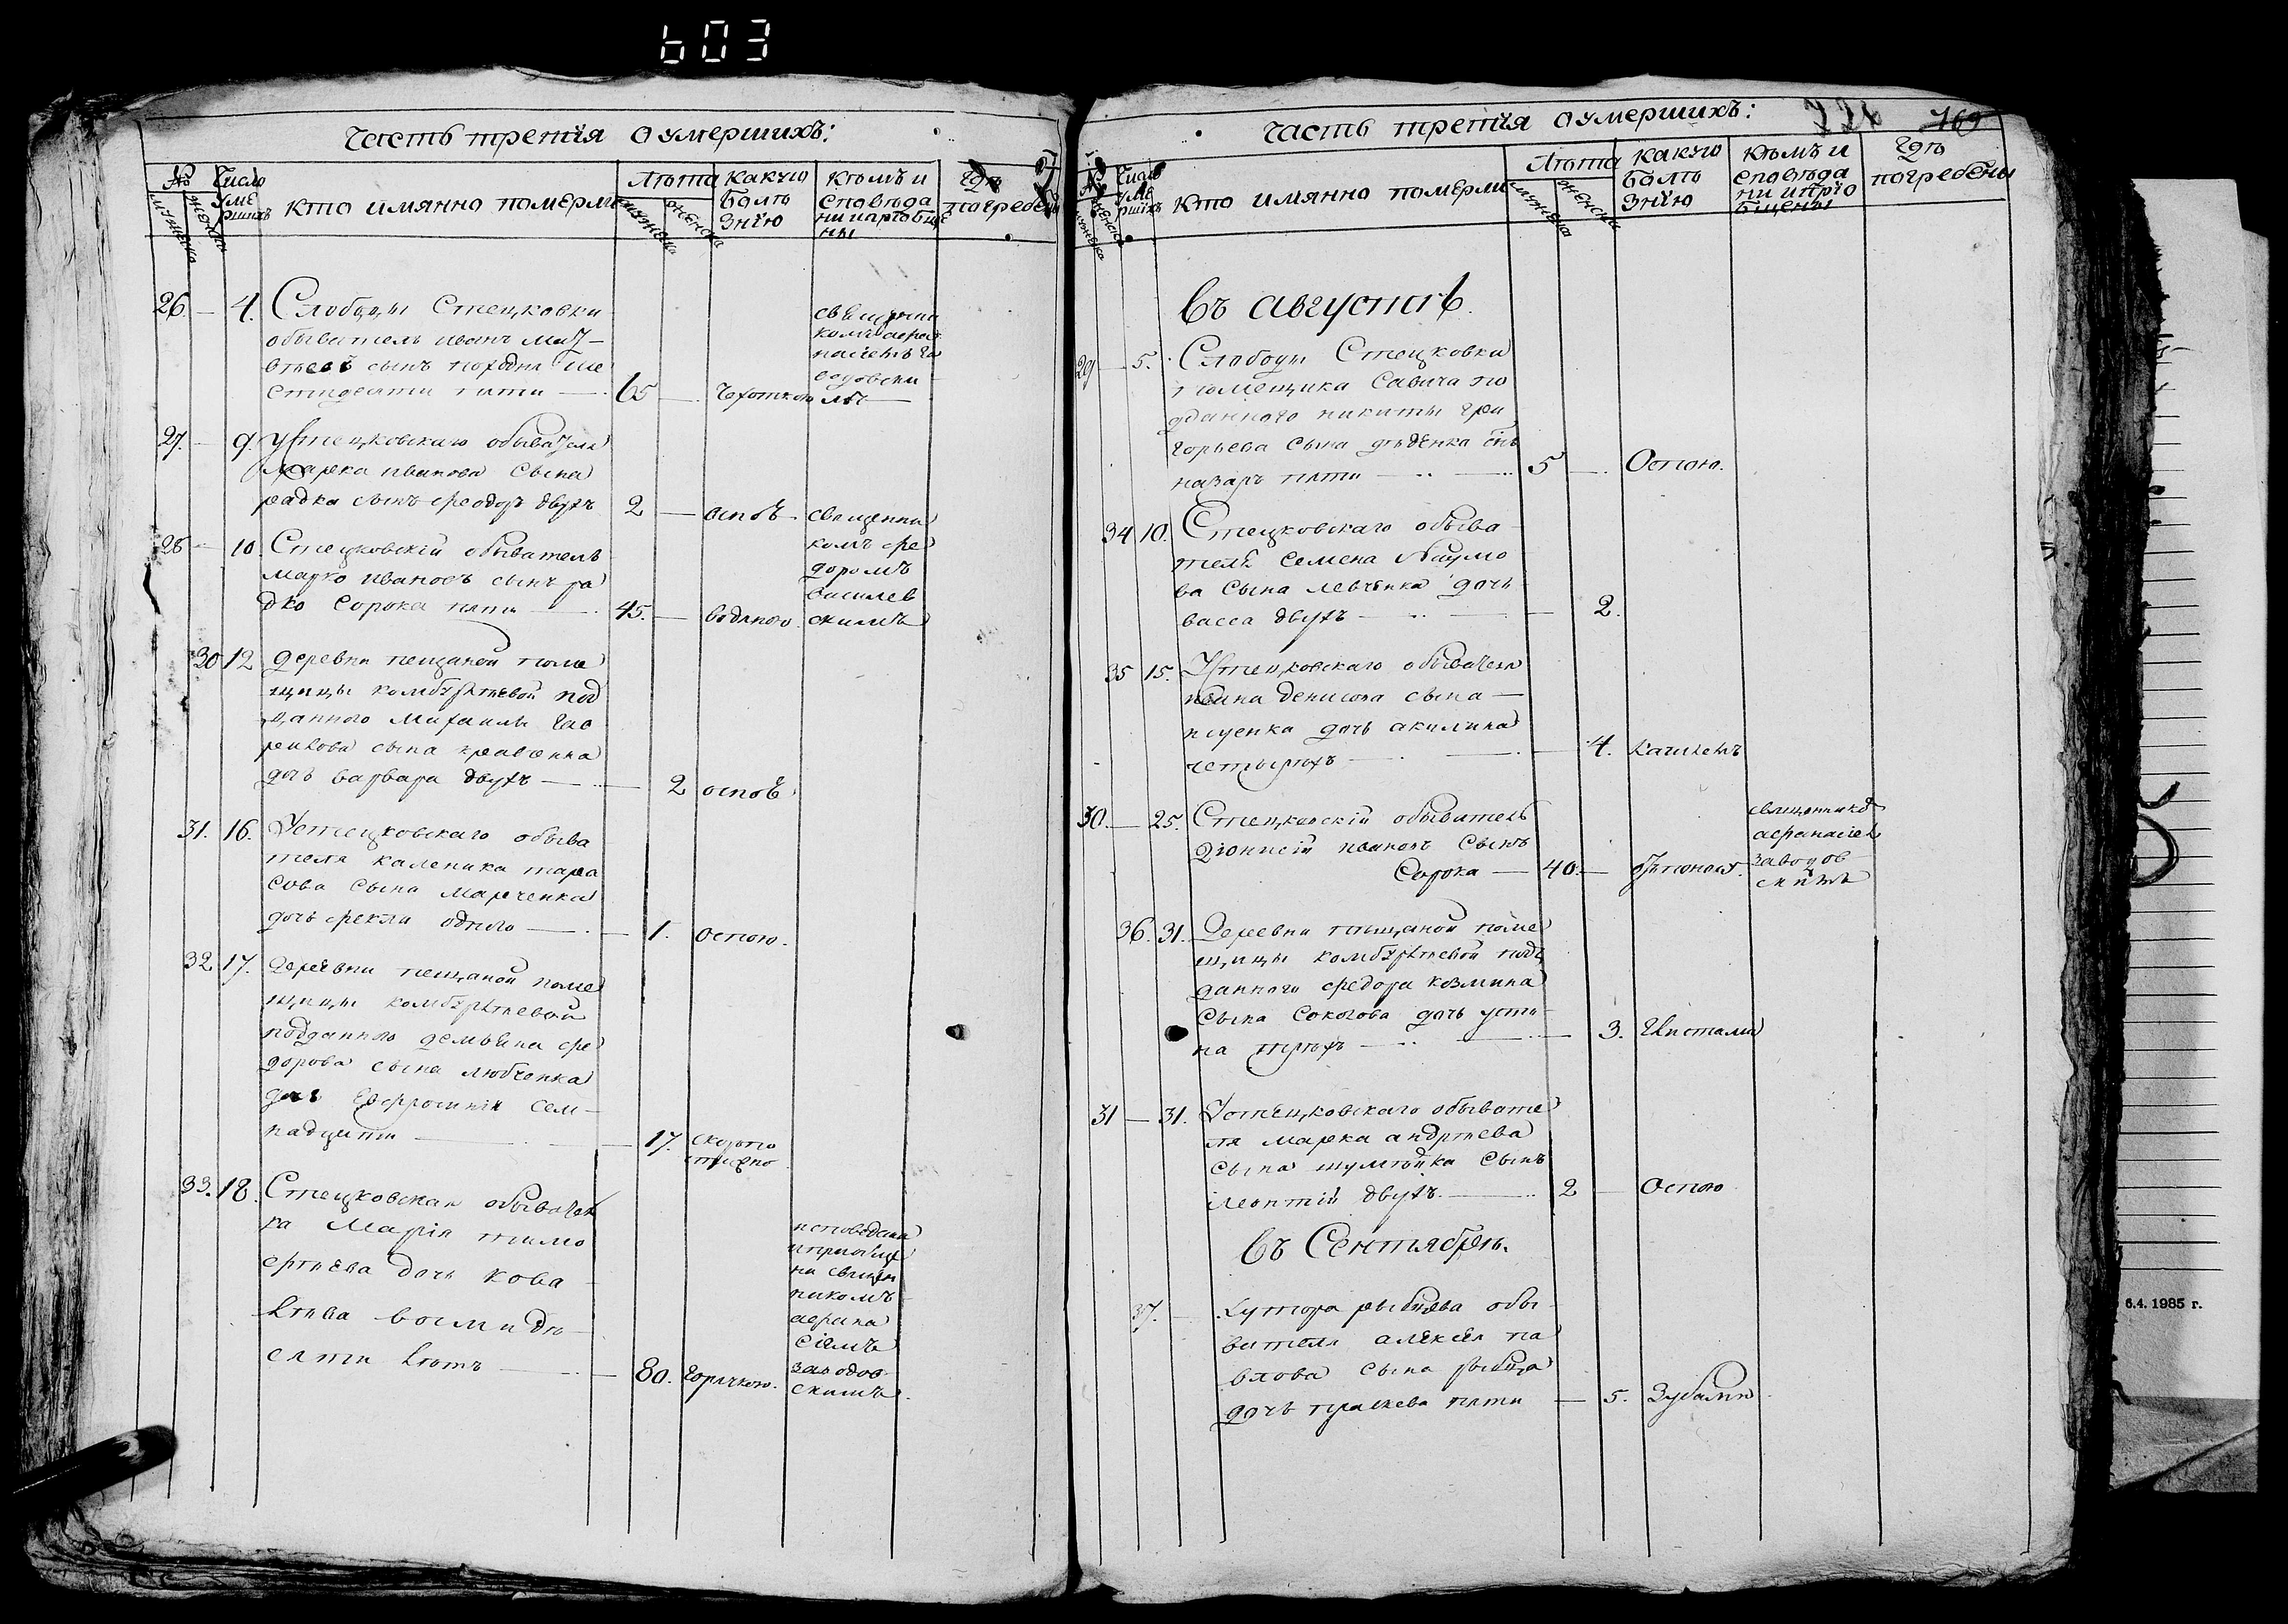 603
Часть третія о умершихъ:
№ Число умершихъ Кто имянно померли Лѣта какую болѣзнїю кѣмъ и сповѣданы и прїобщены гдѣ погребены
мужеска женска мужеска женска
26 — 4. Слободы Стецковки
обыватель иванъ мат-
вѣевъ сынъ
шестидесяти пяти — 65 — Чехоткою
священни
комъ афан
насіемъ за
водовски
мъ
27. — 9. Устецковскаго обывателя
Марка иванова сына
радка сынъ феодоръ двухъ 2 — оспою
28 — 10. Стецковскій обыватель
марко ивановъ сынъ ра
дко сорока пяти — 45. — водяною
священни
комъ фе
доромъ
василев
скимъ
30 12 деревни пещаной поме
щицы комбурлѣевой под
данного михаила гав
рилова сына кравченка
дочь варвара двухъ — 2 оспою
31. 16. Устецковскаго обыва
теля каленика тара
сова сына марченка
дочь фекла одного — 1. оспою.
32 17. Деревни пещаной поме
щицы комбурлѣевой
подданного демьяна фе
дорова сына любченка
дочь Евфросинія сем-
надцати — 17. скоро
33. 18. Стецковская обыватель
ка Марія тимо
фѣева дочь кова
лѣва восмиде
сяти лѣтъ — 80. Горячкою.
исповедана
и приобще
на священ
никомъ
афана
сіемъ
заводов
скимъ.
Часть третія о умершихъ: 169
№ Число умершихъ Кто имянно померли Лѣта какую болѣзнїю кѣмъ и сповѣданы и прїобщены гдѣ погребены
мужеска женска мужеска женска
въ августѣ.
29 — 5. Слободы Стецковки
помещика Савича по
дданного никиты гри
горьева сына дѣденка снъ
назаръ пяти — 5 — Оспою.
34 10. Стецковскаго обыва
теля семена наумо
ва сына левченка дочь
васса двухъ — 2.
35 15. Устецковскаго обывателя
ивана денисова сына —
дочь акилина
четырехъ — 4. Кашлемъ
30. — 25. Стецковскій обыватель
Діонисій ивановъ сынъ
Сорока — 40. —
священнико
афанасіем
заводов
скимъ
36. 31. Деревни пещаной поме
щицы комбурлѣевой под
данного федора козмина
сына соколова дочь усти
на трехъ — 3. Глистами
31 — 31. Устецковскаго обывате
ля марка андрѣева
сына шумѣйка сынъ
леонтій двухъ. — 2 — Оспою
въ Сентябрѣ.
37. — хутора рыбцева обы
вателя алексея па
влова сына рыбца
дочь праскева пяти — 5. Зубами
6.4. 1985 г.